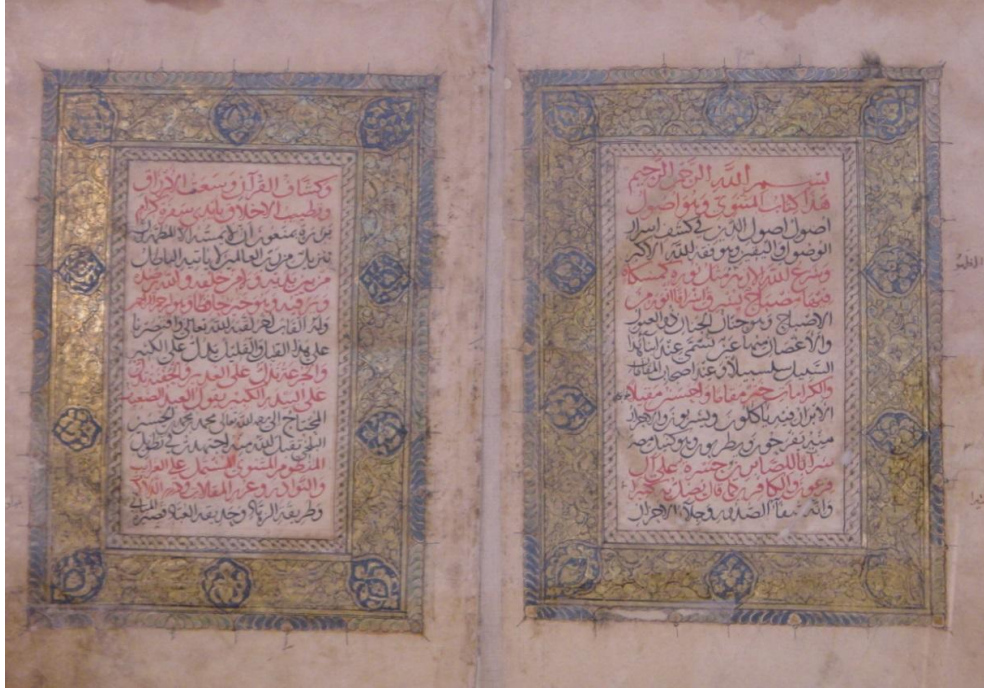 بسم الله الرحمن الرحيم
هذا كتاب المثنوي وهو اصول
اصول اصول الدين في كشف اسرار
الوصول واليقين وهو فقه الله الاكبر
وشرع الله الازهر مثل نوره كمشكاة
فيها مصباح يشرق اشراقا انور من
الاصباح وهو جنان الجنان ذو العيون
والاغصان منها عين تسمى عند ابناء هذا
السبيل سلسبيلا وعند اصحاب المقامات
والكرامات خير مقاما واحسن مقيلا
الابرار فيه ياكلون ويشربون والاحرار
منه يفرحون ويطربون وهو كنيل مصر
شراب للصابرين وحسرة على آل
فرعون والكافرين كما قال يضل به كثيرا
وانه شفاء الصدور وجلاء الاحزان
وكشاف القرآن وسعة الارزاق
وتطييب الاخلاق بايدي سفرة كرام
بررة يمنعون ان لا يمسه الا المطهرون
تنزيل من رب العالمين لا ياتيه الباطل
من بين يديه ولا من خلفه والله يرصده
ويرقبه وهو خير حافظا وهو ارحم
وله القاب اخر لقبه الله تعالى واقتصرنا
على هذا القليل والقليل يدل على الكثير
والجرعة تدل على الغدير والحفنة تدل
على البيدر الكبير يقول العبد الضعيف
المحتاج الى رحمة الله تعالى محمد بن محمد بن الحسين
البلخي تقبل الله منه اجتهدت في تطويل
المنظوم المثنوي المشتمل على الغرائب
والنوادر وغرر المقالات ودرر
وطريقة الزهاد وحديقة العباد قصيرة المباني